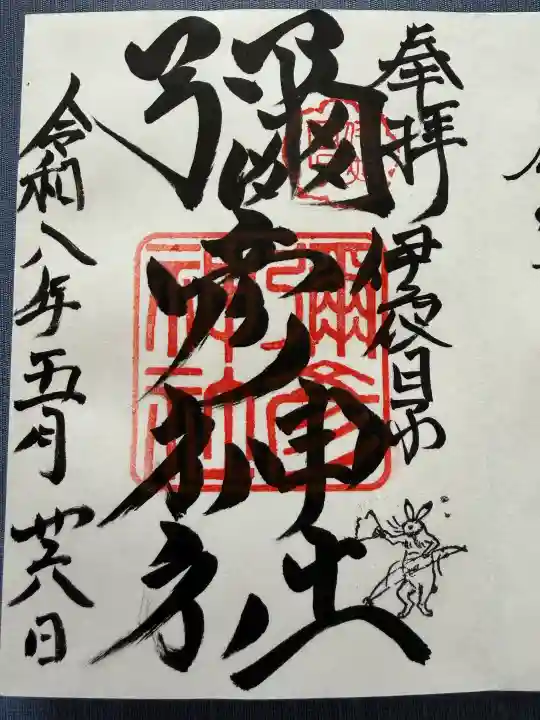 奉拝 伊夜日子
彌彦神社
彌彦
神社
令和八年五月廿六日